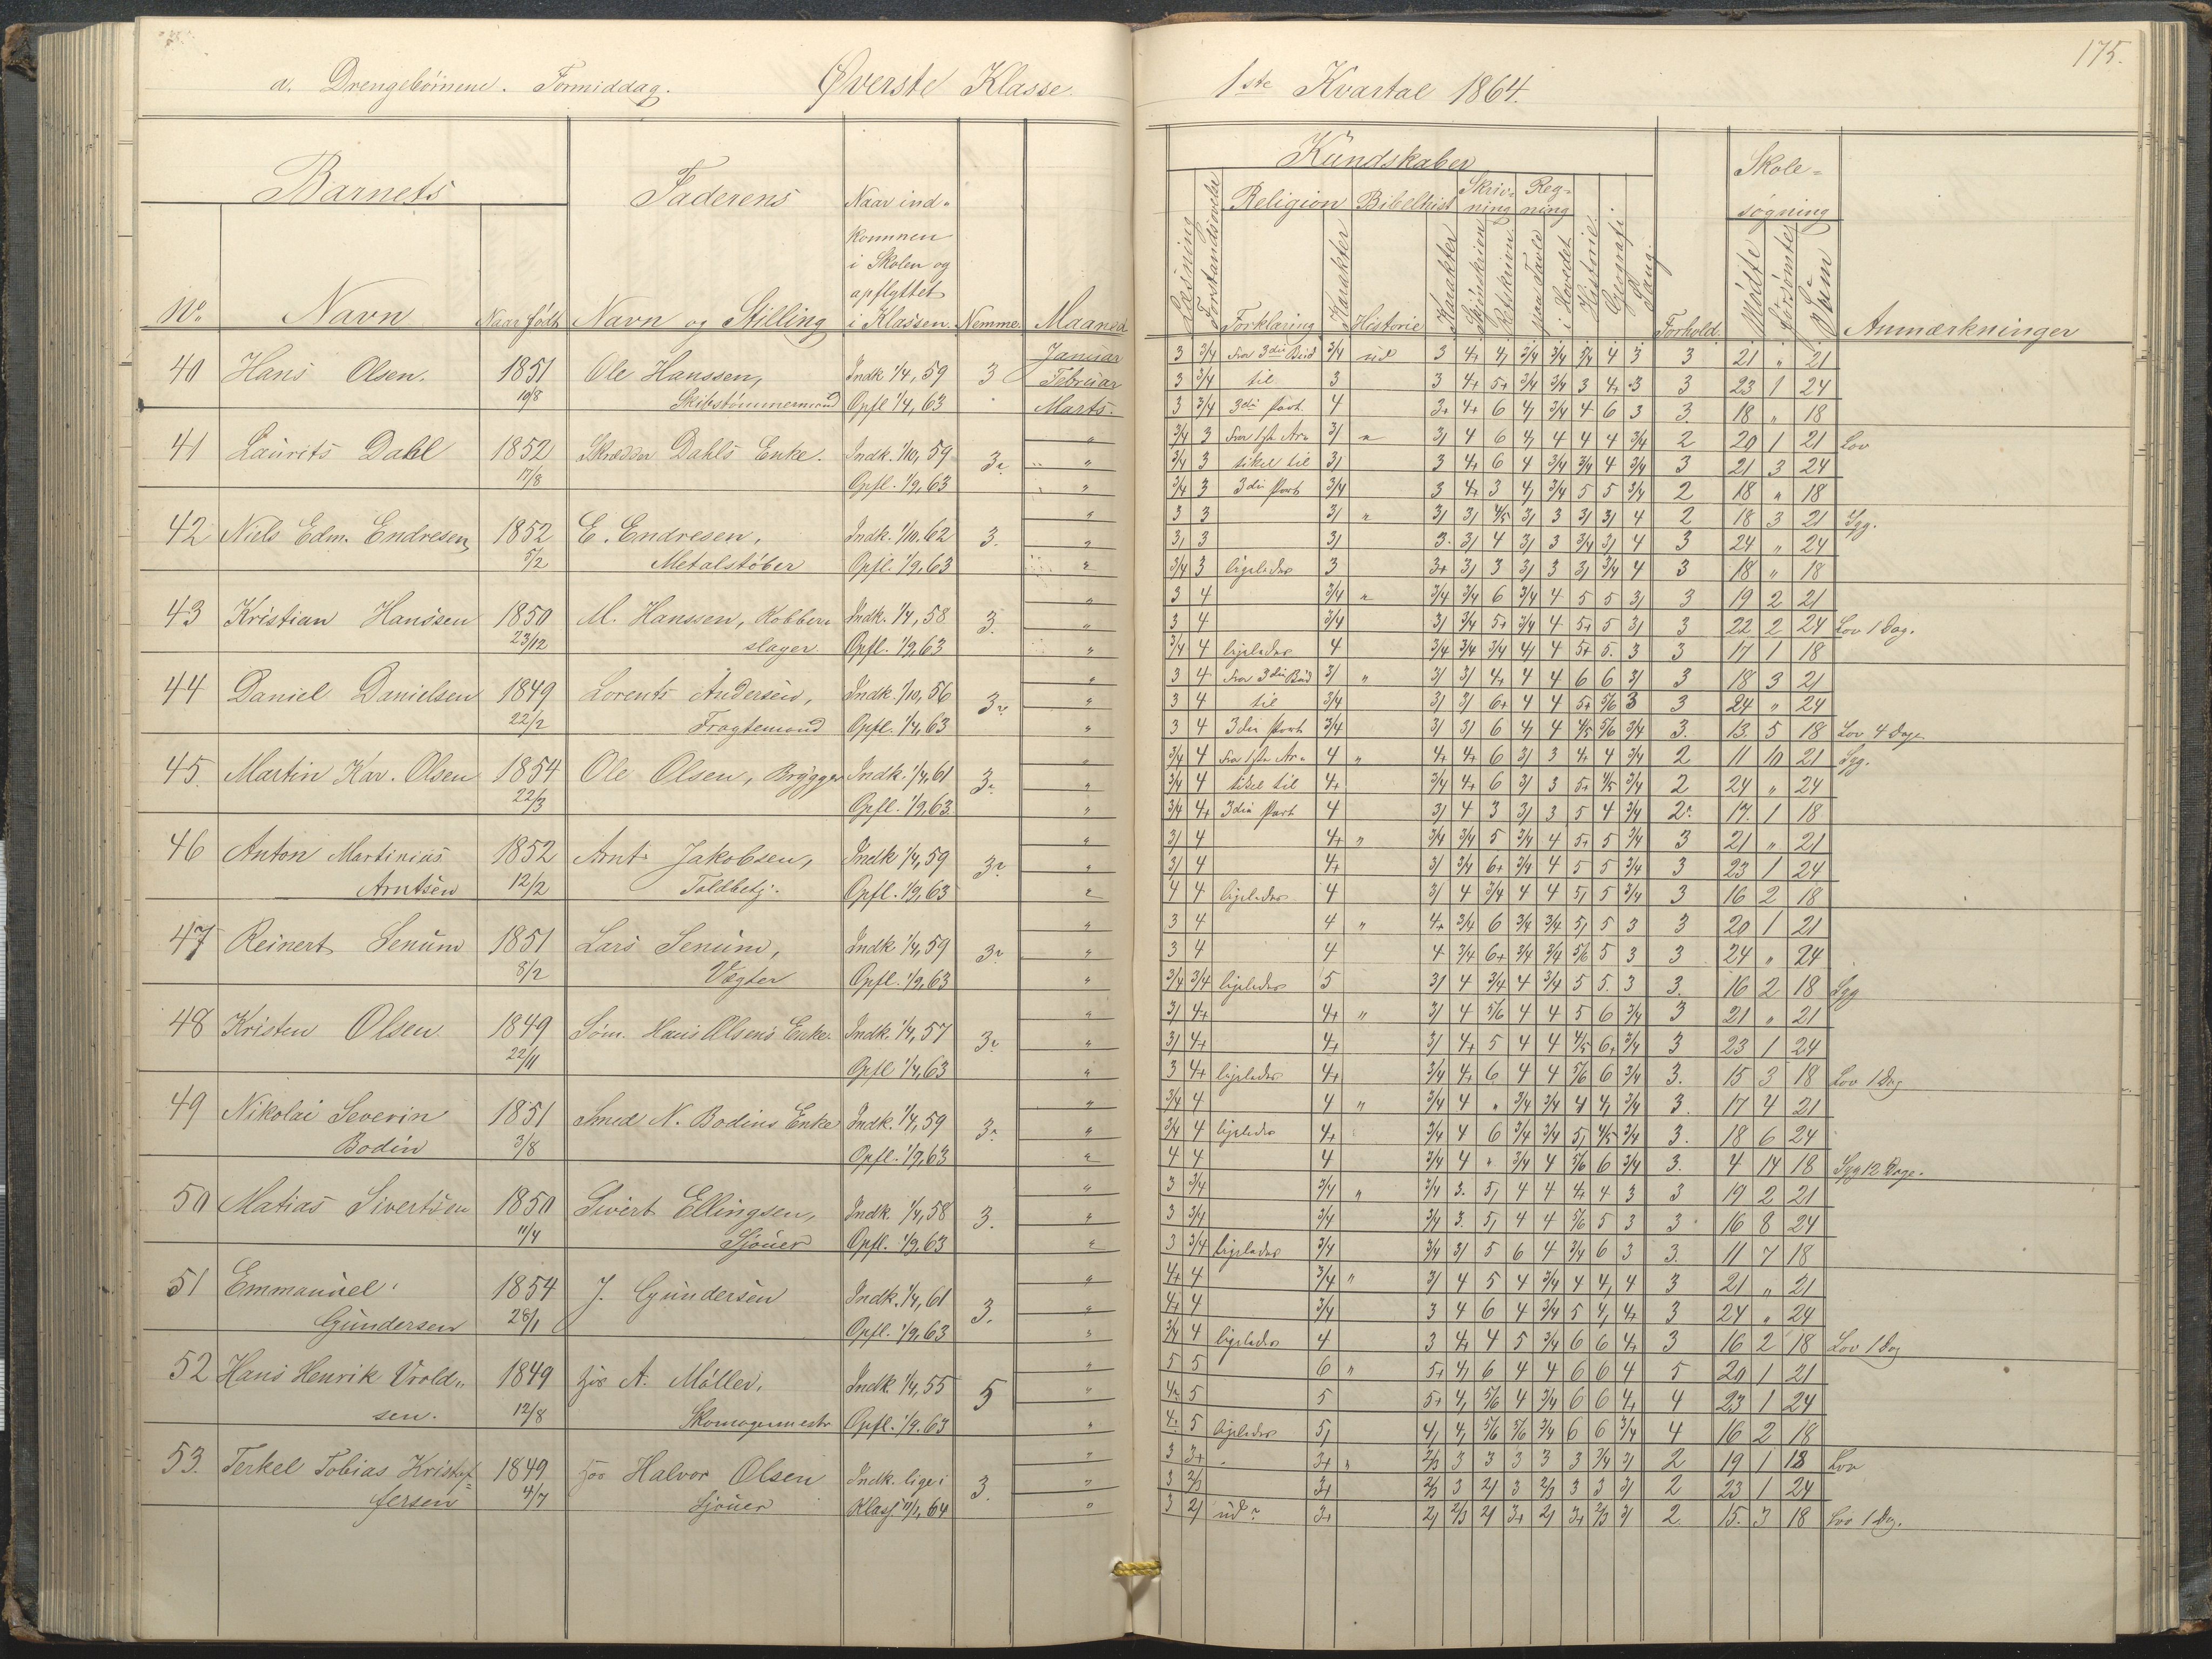 175.
a. Drengebørnene. Formiddag. Øverste Klasse. 1ste Kvartal 1864.
Barnets Faderens Naar ind-
kommen
i Skolen og
opflyttet
No. Navn Naar født Navn og Stilling i Klassen. Nemme. Maaned
Kundskaber Skole-
søgning
Læsning Forstandsøvelse Religion Bibelhist Skriv-
ning Reg-
ning
Forklaring Karakter Historie Karakter Skjønskriven Retskrivn. paa Tavle i Hovedet Historie Geografi Sang. Forhold. Mødte forsømte Sum Anmærkninger
40 Hans Olsen. 1851 Ole Hanssen, Indk 1/4, 59 3 Januar 3 3/4 fra 3die 3/4 ud 3 4+ 3/4 3/4 4 3 3 21 " 21
Februar 3 3/4 til 3 3 4+ 5+ 3/4 3/4 3 4+ 3 3 23 1 24
19/8 Skibstømmermand Opfl 1/4, 63 Marts. 3 3/4 3die Part 4 3+ 4+ 6 3/4 4 6 3 3. 18 " 18
41 Laurits Dahl 1852 Skrædder Dahls Enke. Indk. 1/10, 59 " 3/4 3 fra 1ste Ar- 4 6 4 4 4 3/4 2 20 1 21 Lov
" 3/4 3 tikel til 3 4+ 6 4 3/4 3/4 4 3/4 3 21 3 24
17/8 Opfl. 1/9, 63 " 3/4 3 3die Part 3/4 3 4+ 3 3/4 5 5 3/4 2 18 " 18
42 Niels Edm. Endresen 1852 E. Endresen, Indk. 1/10. 62 3. " 3 3 " 4/5 3 4 2 18 3 21 Syg.
" 3 4 3 3/4 4 3 24 " 24
5/2 Metalstøber Opfl. 1/9, 63 " 3/4 3 ligeledes 3 3+ 3 3 3/4 4 3 18 " 18
43 Kristian Hanssen 1850 M. Hanssen, Kobber- Indk. 1/4, 58 3. " 3 4 3/4 " 3/4 3/4 6 3/4 4 5 5 3 19 2 21
" 3 4 3/4 3/4 5+ 3/4 4 5+ 5 3 22 2 24 Lov 1 Dag.
23/12 slager Opfl. 1/9, 63 " 3/4 4 ligeledes 4 3/4 3/4 3/4 4 5+ 5. 3 3 17 1 18
44 Daniel Danielsen 1849 Lorents Andersen, Indk. 1/10, 56 " 3 4 fra 3die " 4 4 6 6 3 18 3 21
" 3 4 til 3/4 6+ 4 4 5+ 5/6 3 3 24 " 24
22/2 Fragtemand Opfl. 1/4, 63 " 3 4 3die Part 3/4 6 4 4/5 5/6 3/4 3. 13. 5 18 Lov 4 Dage
45. Martin Kar. Olsen 1854 Ole Olsen, Brygger Indk. 1/4, 61 " 3/4 4 fra 1ste Ar- 4 " 4+ 4+ 6 3 4+ 4 3/4 2 11 10 21 Syg.
" 3/4 4 tikel til 4+ 3/4 4+ 6 3 5+ 4/5 3/4 2 24 " 24
22/3 Opfl. 1/9, 63. " 3/4 4+ 3die Part 4 4 3 3 5 4 3/4 17. 1 18
46 Anton Martinius 1852 Arnt Jakobsen, Indk 1/4, 59 " 4 4+ " 3/4 3/4 5 3/4 4 5+ 5 3/4 3 21 " 21
" 4 4+ 3/4 6+ 3/4 4 5 5 3/4 3 23 1 24
Arntsen 12/2 Toldbetj. Opfl. 1/9, 63 " 4 4 ligeledes 4 4 3/4 4 4 5 3/4 3 16 2 18
47 Reinert Senum 1851 Lars Senum, Indk 1/4, 59 " 3 4 4 " 4+ 3/4 6 3/4 3/4 5 3 3 20 1 21
" 3 4 4 4 3/4 6+ 3/4 3/4 5/6 5 3 3 24 " 24
8/2 Vægter Opfl. 1/9, 63 " 3/4 3/4 ligeledes 5 4 3/4 4 3/4 5 5. 3 3. 16 2 18 Syg
48 Kristen Olsen 1849 Søm. Hans Olsens Enke. Indk. 1/4, 57 " 4+ 4+ " 4 5/6 4 4 5 6 3/4 3 21 " 21
" 4+ 4+ 4+ 5 4 4 4/5 6+ 3/4 3 23 1 24
22/11 Opfl 1/4, 63 " 3 4+ ligeledes 4+ 3/4 4+ 6 4 4 5/6 6 3/4 3. 15 3 18 Lov 1 Dag
49 Nikolai Severin 1851 Smed N. Bodins Enke Indk. 1/4, 59 " 3/4 4 4 " 3/4 4 " 3/4 3/4 3/4 3. 17 4 21
" 3/4 4 ligeledes 4+ 3/4 4 6 3/4 3/4 4/5 3/4 3. 18 6 24
Bodin 3/8 Opfl. 1/9, 63 " 4 4 4 3/4 4 " 3/4 4 5/6 6 3/4 3. 4 14 18 Syg 12 Dage.
50 Matias Sivertsen 1850 Sivert Ellingsen, Indk. 1/4, 58 3. " 3 3/4 3/4 " 3/4 3. 4 4 4+ 4 3 3 19 2 21
" 3 3/4 3/4 3/4 3. 4 4 5/6 5 3 3 16 8 24
11/4 Sjouer Opfl. 1/9, 63 " 3 3/4 ligeledes 3/4 3/4 5 6 4 3/4 6 3 3. 11 7 18
51 Emmanuel 1854 J. Gundersen Indk. 1/4, 61 3. " 4+ 4 3/4 " 4 5 4 3/4 4 4 3 21 " 21
" 4+ 4 3/4 3 4 6 4 3/4 5 4+ 3 24 " 24
Gundersen 28/1 Opfl. 1/9, 63 " 3/4 4 ligeledes 4 3 4+ 4 5 3/4 6 6 4+ 3 16 2 18 Lov 1 Dag
52 Hans Henrik Vrold- 1849 hos A. Møller, Indk 1/4, 55 5 " 5 5 6 " 5+ 6 4 4 6 6 4 5 20 1 21
" 5 5 5+ 5/6 4 3/4 6 6 4+ 4 23 1 24
sen. 12/8 Skomagermestr Opfl. 1/9. 63 " 5 ligeledes 5/6 5/6 3/4 6 6 3/4 4 16 2 18
53. Terkel Tobias Kristof- 1849 hos Halvor Olsen Indk. lige i 3. " 3 3+ 3+ " 2/3 3 3 3 3 3 3/4 2 19 1 18 Lov
" 3 2/3 3+ 2/3 3 3 2/3 3 3 2 23 1 24
fersen 4/7 Sjouer Klass. 11/1, 64 " 3 ud 3+ 2/3 3+ 3+ 2/3 2. 15. 3 18 Lov 1 Dag.